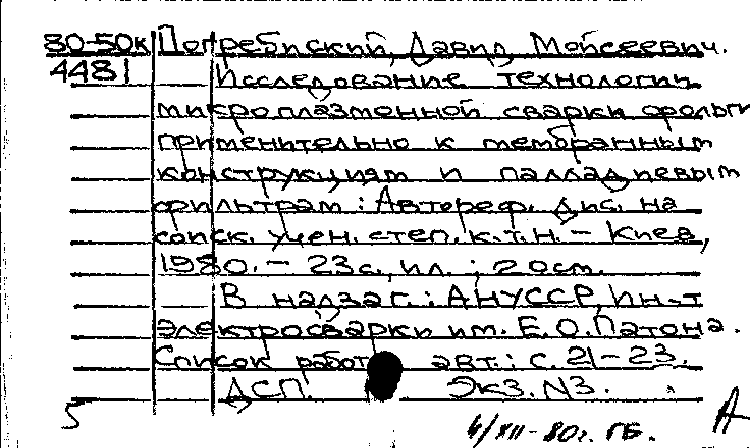 80-50к Погребиский, Давид Мойсеевич.
4481 Исследование технологии
микроплазменной сварки фольги
применительно к мембранным
конструкциям и палладиевым
фильтрам: Автореф. дис. на
соиск. учен. степ. к.т.н. – Киев,
1980. – 23с., ил. ; 20см.
В надзаг.: АН УССР, Ин-т
электросварки им. Е.О.Патона.
Список работ авт.: с. 21-23.
ДСП. Экз. N3.
6/XII-80г. ГБ. А